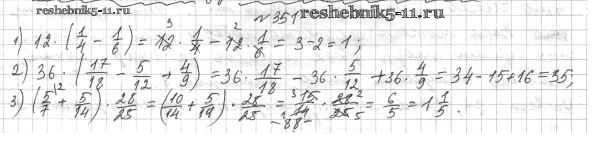 reshebnik5-11.ru
№351 reshebnik5-11.ru
1) 12·(1/4 - 1/6) = 12·1/4 - 12·1/6 = 3-2 = 1;
2) 36·(17/18 - 5/12 + 4/9) = 36·17/18 - 36·5/12 + 36·4/9 = 34-15+16 = 35,
3) (5/7 + 5/14)·28/25 = (10/14 + 5/19)·28/25 = 15/14·28/25 = 6/5 = 1 1/5.